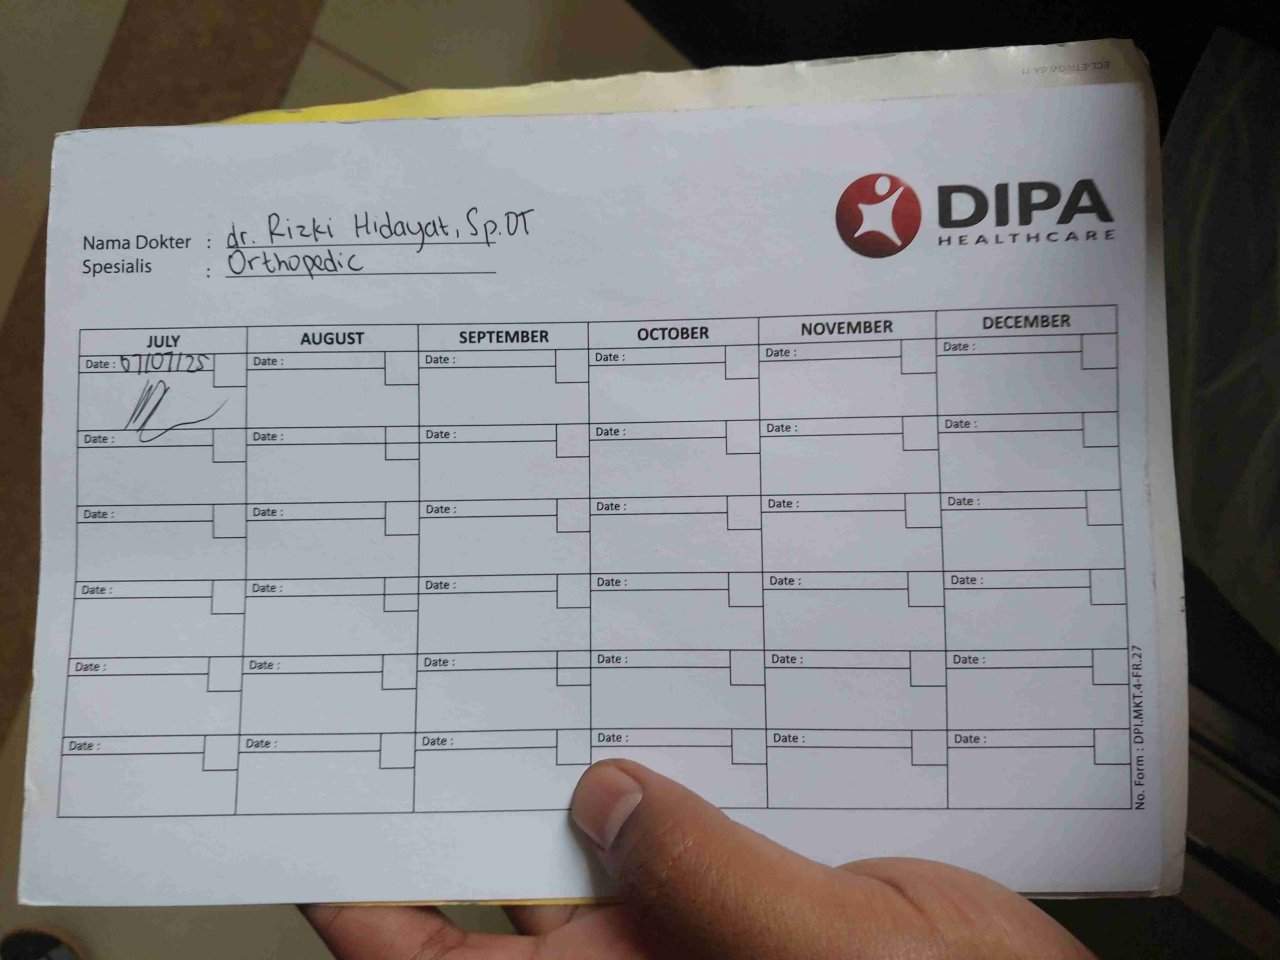 DIPA
HEALTHCARE
Nama Dokter : dr. Rizki Hidayat, Sp.OT
Spesialis : Orthopedic
JULY AUGUST SEPTEMBER OCTOBER NOVEMBER DECEMBER
Date : 07/07/25 Date : Date : Date : Date : Date :
Date : Date : Date : Date : Date : Date :
Date : Date : Date : Date : Date : Date :
Date : Date : Date : Date : Date : Date :
Date : Date : Date : Date : Date : Date :
Date : Date : Date : Date : Date : Date :
No. Form : DPI.MKT.4-FR.27